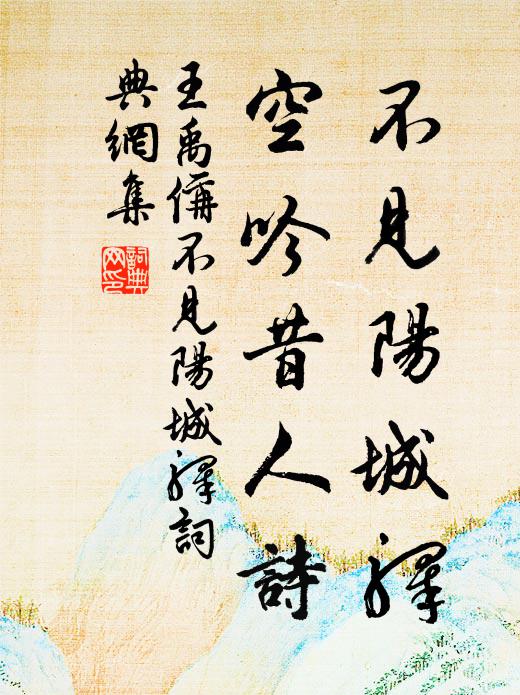 不見陽城驛
空吟昔人詩
王禹偁不見陽城驛詞
典網集
詞典
网印